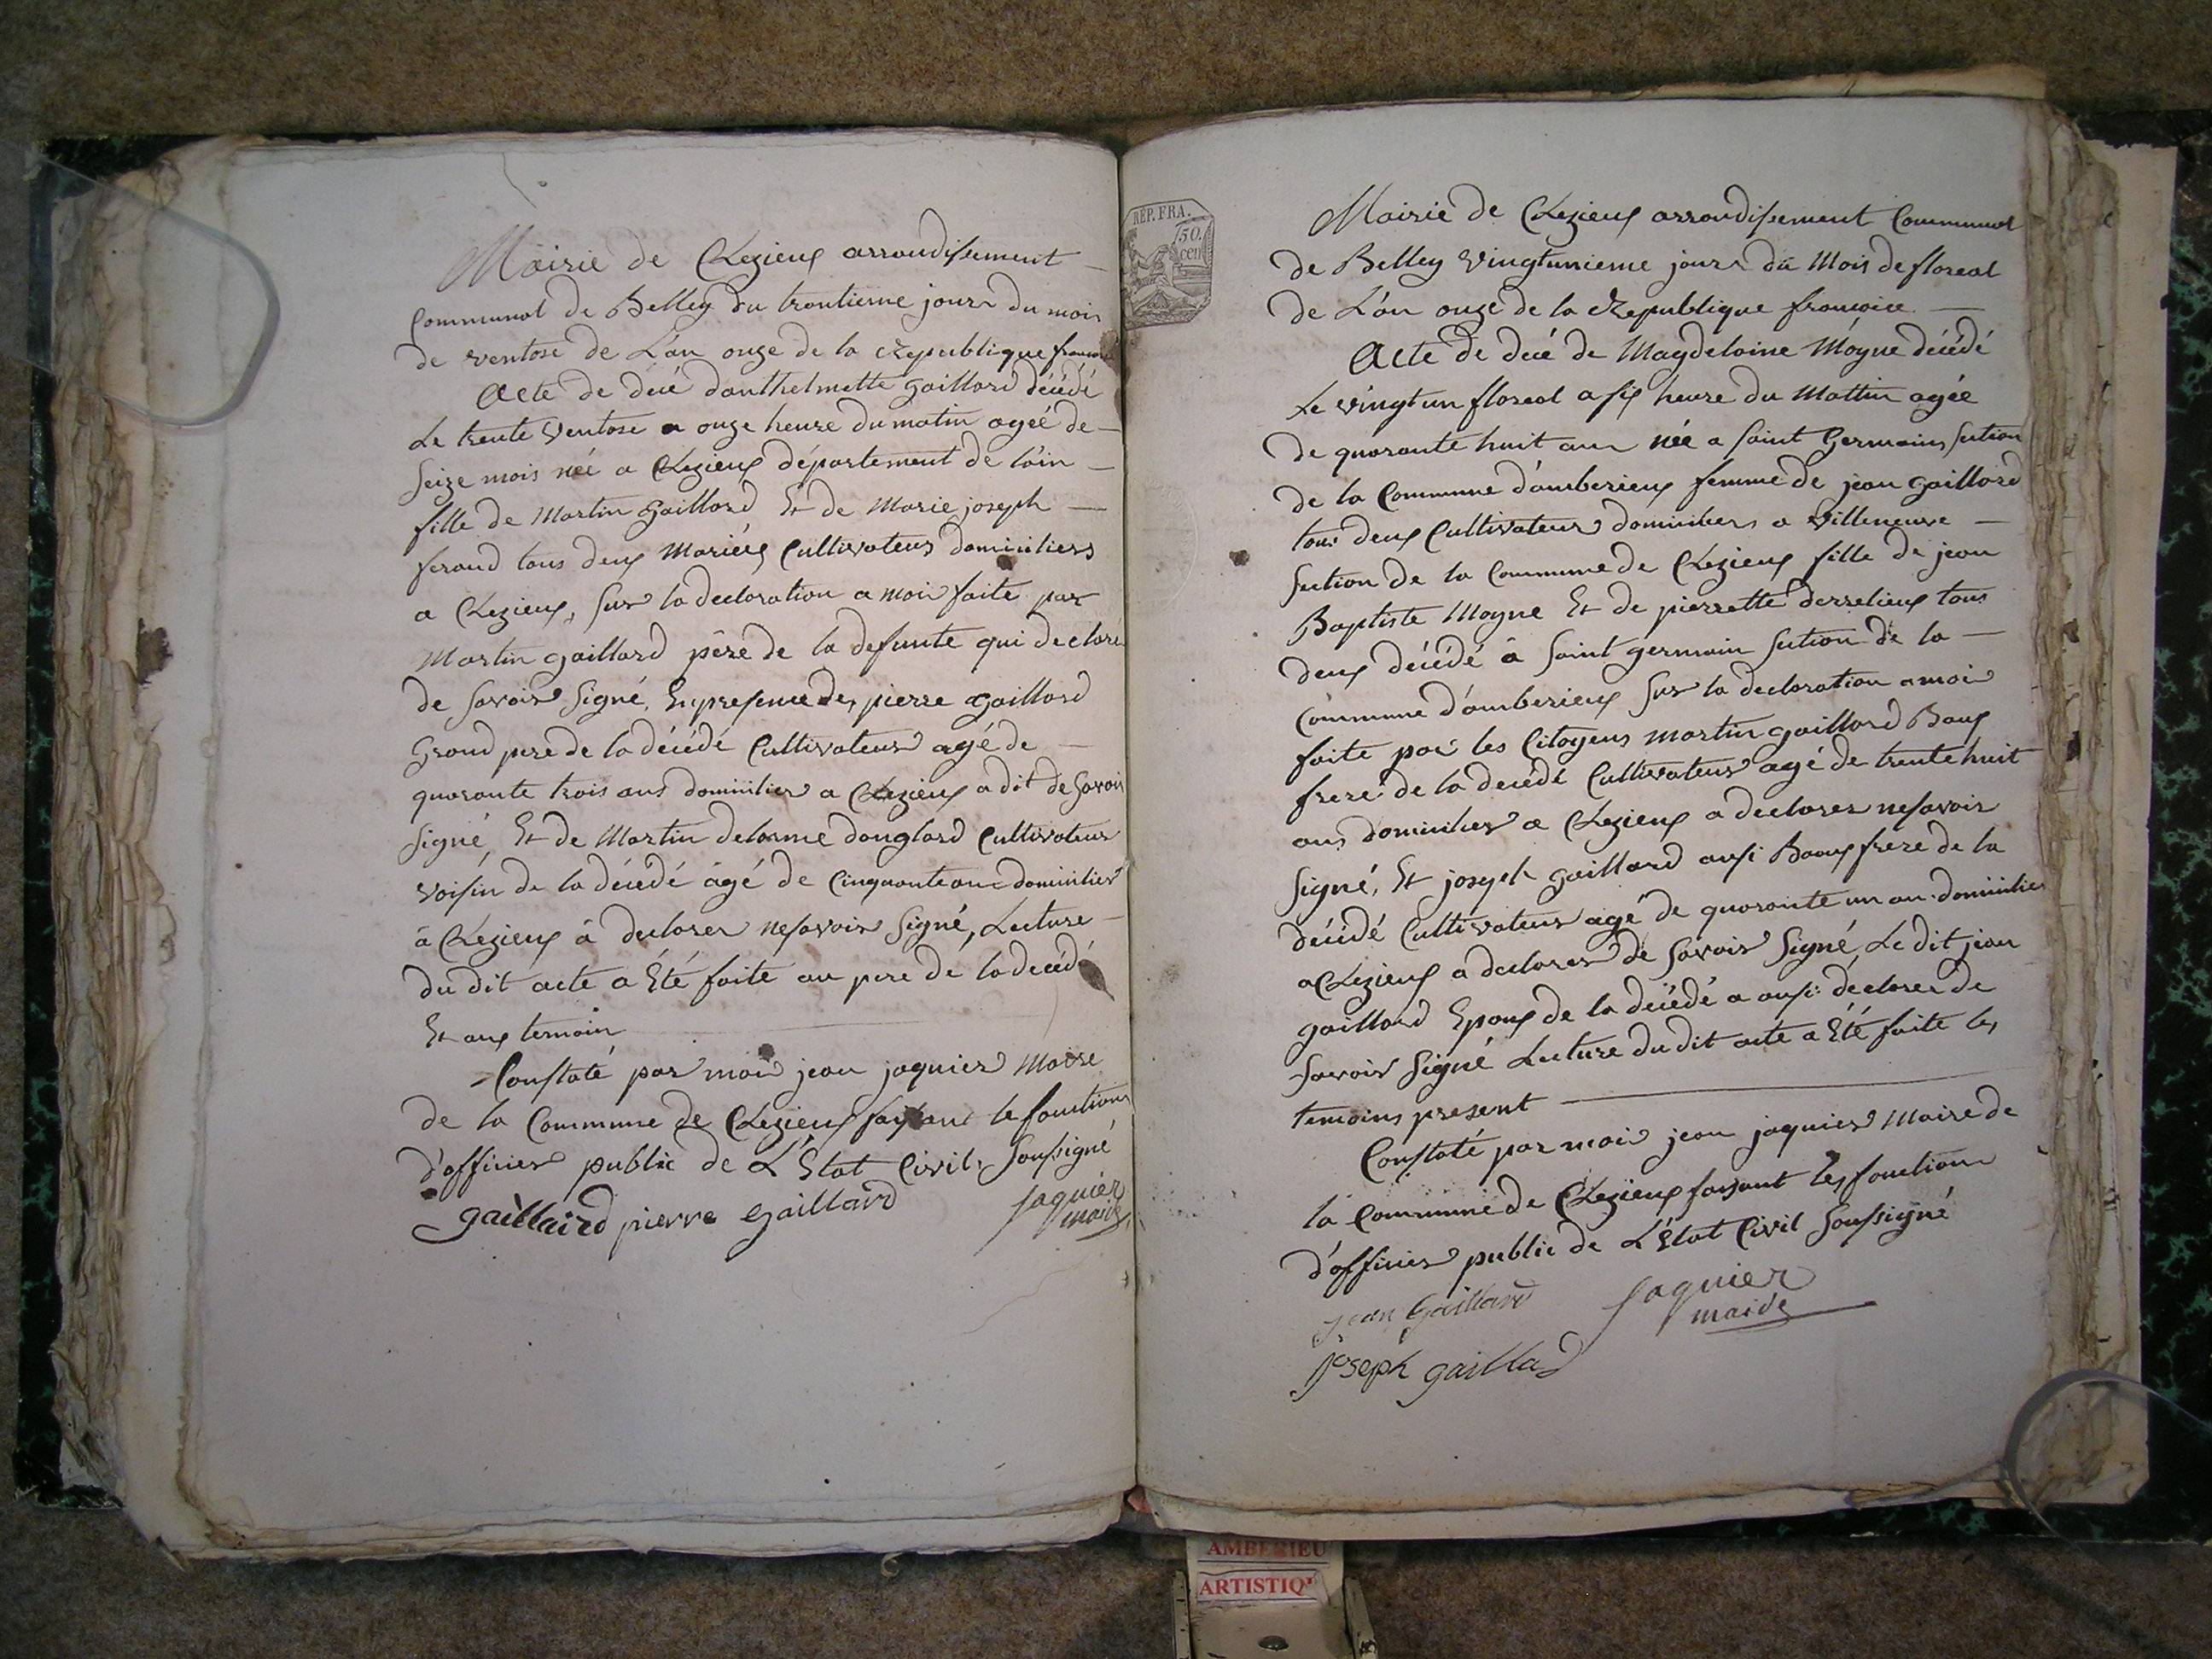 Mairie de Clezieux arrondissement
Communal de Belley du trontieme jour du mois
de ventose de L'an onze de la Republique francoise
Acte de décé danthelmette gaillard décédé
Le trente ventose a onze heure du matin ageé de
Seize mois néé a Clezieux département de l'ain
fille de Martin gaillard Et de Marie joseph
ferand tous deux Mariéz Cultivateurs domiciliers
a Clezieux, Sur la declaration a moi faite par
Martin gaillard pére de la defunte qui declare
de Savoir Signé, En presence de, pierre gaillard
Grand pere de la décédé Cultivateur agé de
quarante trois ans domicilier a Clezieux a dit de Savoir
Signé, Et de Martin delorme donglard Cultivateur
voisin de la décédé âgé de Cinquante ans domicilier
à Clezieux à declarer ne savoir Signé, Lecture
du dit acte a Été faite au pere de la decédé
Et aux temoin
Constaté par moi jean jaquier Maire
de la Commune de Clezieux faisant le fonctions
d'officier public de L'État Civil Soussigné
gaillaird pierre gaillard Jaquier
maire
REP. FRA.
50.
cen
Mairie de Clezieux arrondissement Communal
de Belley vingtunieme jour du Mois de floreal
de L'an onze de la Republique francoise
Acte de décé de Magdelaine Moyne décédé
Le vingt un floreal a six heure du Mattin agée
de quarante huit ans née a Saint Germains Section
de la Commune d'amberieux femme de jean gaillard
tous deux Cultivateurs domiciliers a Villeneuve
Section de la Commune de Clezieux fille de jean
Baptiste Moyne Et de pierrette derrelieux tous
deux décédé à Saint germain Section de la
Commune d'amberieux Sur la declaration a moi
faite par les Citoyens martin gaillard Baux
frere de la decédé Cultivateur agé de trente huit
ans domicilier a Clezieux a declarer ne savoir
Signé, Et joseph gaillard aussi Baux frere de la
décédé Cultivateur agé de quarante un an domicilier
a Clezieux a declarer de Savoir Signé, Le dit jean
gaillard Epoux de la décédé a aussi declarer de
Savoir Signé Lecture du dit acte a Été faite les
temoins present
Constaté par moi jean jaquier Maire de
la Commune de Clezieux faisant les fonction
d'officier public de L'État Civil Soussigné
jean Gaillard Jaquier
maire
joseph gaillad
AMBERIEU
ARTISTIQ